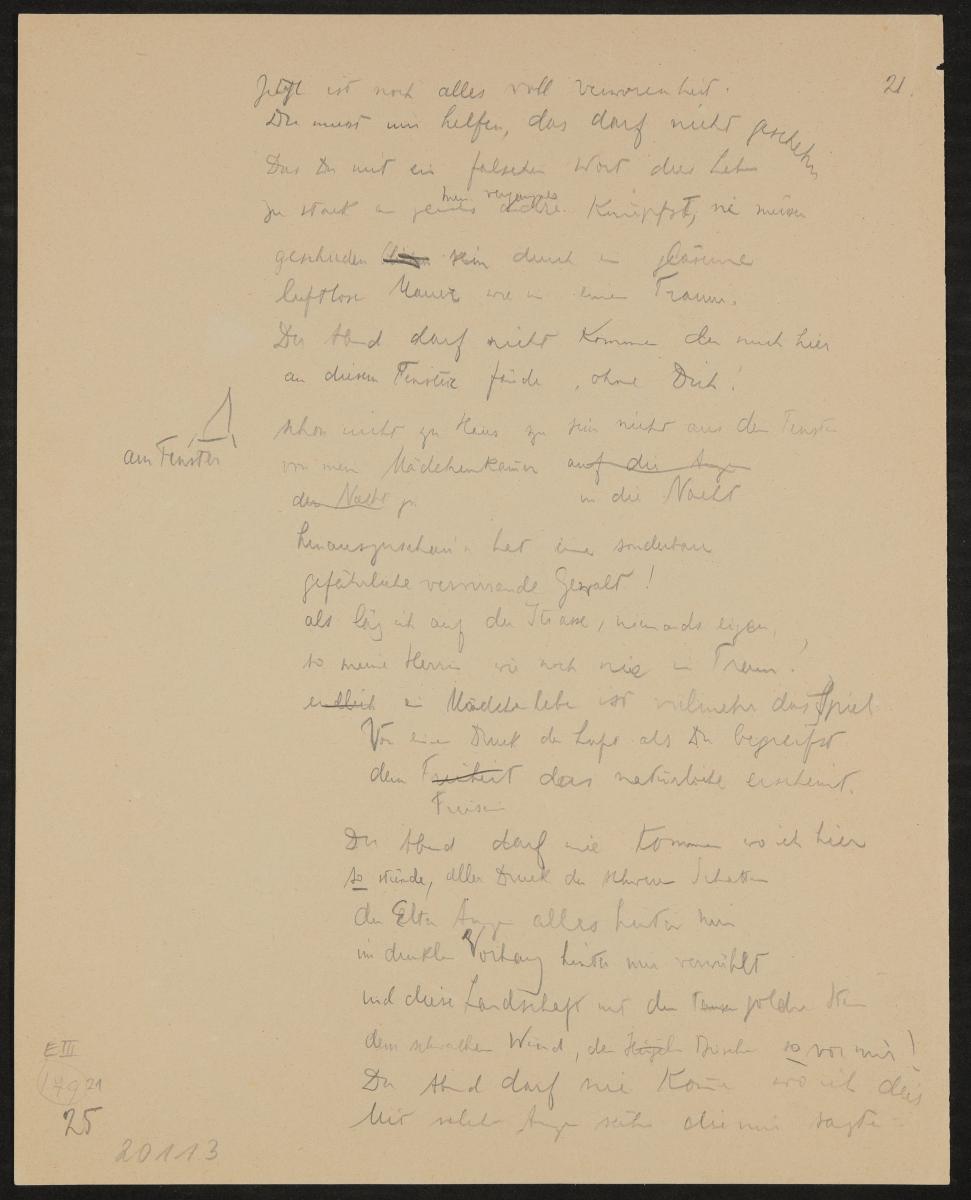 21.
Jetzt ist noch alles voll Verworrenheit.
Du musst mir helfen, das darf nicht geschehn
Das Du mit ein falschen Wort dies Leben
mein vergangnes
zu stark an andre Knüpfst, sie müssen
geschieden sein durch ein gläserne
luftlose Mauer wie in einem Traum.
Der Abend darf nicht Kommen der mich hier
an diesem Fenster fände, ohne Dich!
schon nicht zu Haus zu sein nicht aus dem Fenster
am Fenster
von mein Mädchenkammer auf die Auge
der Nacht in die Nacht
hinauszuschaun hat eine sonderbare
gefährliche verwirrende Gewalt!
als läg ich auf der Strasse, niemands eigen,
so meine Herrin wie noch nie im Traum!
endlich ein Mädchenleben ist vielmehr das Spiel
Von einem Druck der Luft als Du begreifst
dem Freiheit das natürliche erscheint.
Freisein
Der Abend darf nie Kommen wo ich hier
so stünde, aller Druck der schweren Schatten
der Eltern Augen alles hinter mir
im dunklen Vorhang hinter mir verwühlt
und diese Landschaft mit den goldnen Stern
dem schwachen Wind, den Büschen so vor mir!
Der Abend darf nie Komen wo ich dies
Mit solchen Augen sähe die mir sagten
E III
179 21
25
20113